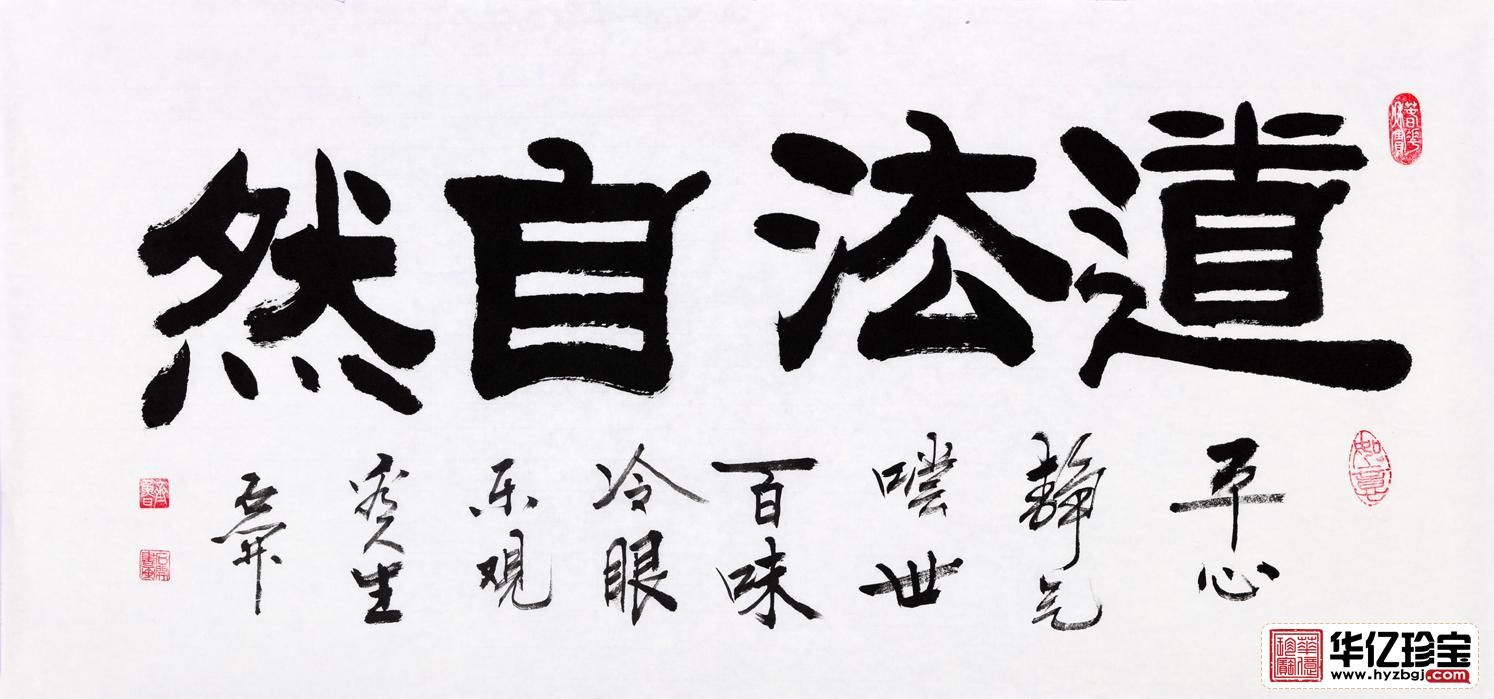 道法自然
平心
静气
嚐世
百味
冷眼
乐观
人生
如意
華億珍寶
华亿珍宝
www.hyzbgj.com